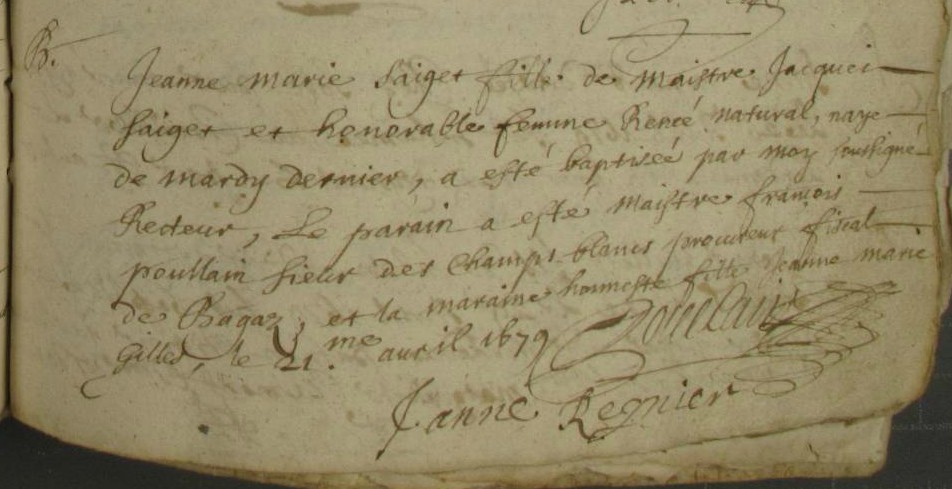 B.
Jeanne marie Saiget fille de maistre Jacques
Saiget et honorable femme Renée natural, naye
de mardy dernier, a esté baptiseé par moy soussigné
Recteur, Le parain a esté maistre françois
poullain sieur des Champs-blancs procureur fiscal
de Bagaz, et la maraine honneste fille Jeanne marie
Gilles, le 21.me avril 1679 Poullain
Janne Regnier